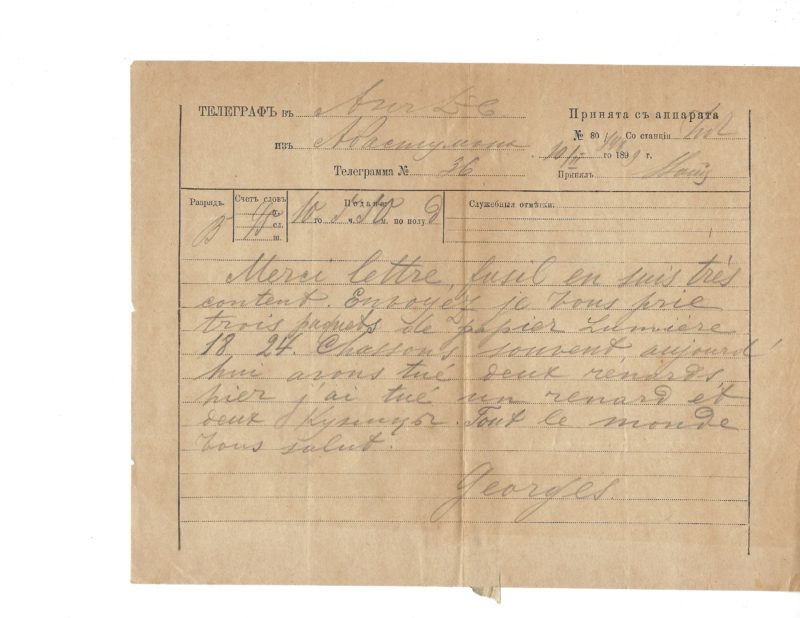 ТЕЛЕГРАФЪ въ
Принята съ аппарата
№ 80 Со станціи
изъ Абастумана
10 го 1899 г.
Телеграмма № 36
Принялъ
Разрядъ. Счетъ словъ Подана: Служебныя отмѣтки:
сл. 10 го ч. м. по полу
Merci lettre, fusil en suis très
content. Envoyez je vous prie
trois paquets de papier Lumière
18 24. Chassons souvent, aujourd'
hui avons tué deux renards,
hier j'ai tué un renard et
deux Куницы. Tout le monde
vous salut.
Georges.